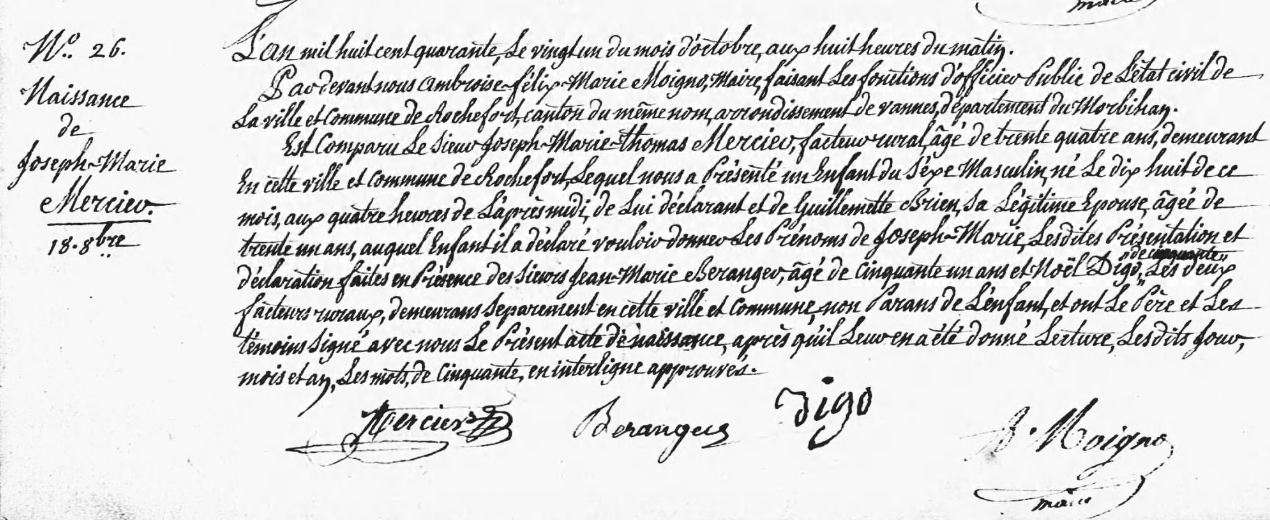 maire
N.º 26.
Naissance
de
Joseph-Marie
Mercier.
18. 8bre
L'an mil huit cent quarante, Le vingt un du mois d'octobre, aux huit heures du matin.
Pardevant nous Ambroise-félix-Marie Moigno, Maire, faisant Les fonctions d'officier Public de L'état civil de
La ville et Commune de Rochefort, canton du même nom, arrondissement de vannes, département du Morbihan.
Est Comparu Le Sieur Joseph-Marie-Thomas Mercier, facteur rural, âgé de trente quatre ans, demeurant
En cette ville et Commune de Rochefort, Lequel nous a Présenté un Enfant du Séxe Masculin, né Le dix huit de ce
mois, aux quatre heures de L'après midi, de Lui déclarant et de Guillemette Brien, Sa Légitime Epouse, âgée de
trente un ans, auquel Enfant il a déclaré vouloir donner Les Prénoms de Joseph-Marie, Lesdites Présentation et
déclaration faites en Présence des Sieurs Jean-Marie Beranger, âgé de Cinquante un ans et Noël Digo, "de cinquante" Les deux
facteurs ruraux, demeurans Séparement en cette ville et Commune, non Parans de L'enfant, et ont Le Père et Les
témoins Signé avec nous Le Présent acte de naissance, après qu'il Leur en a été donné Lecture, Lesdits jour,
mois et an, Les mots, de Cinquante, en interligne approuvés.
Mercier
Beranger
Digo
Moigno
maire